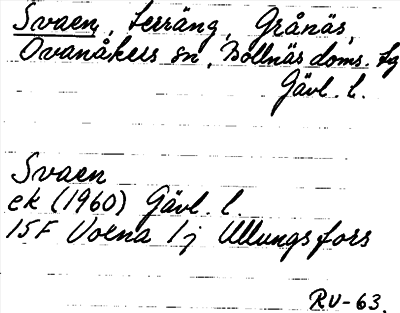 Svaen, terräng, Grånäs,
Ovanåkers sn, Bollnäs doms. tg
Gävl. l.
Svaen
ek (1960) Gävl. l.
15F Voxna 1j Ullungsfors
RV-63.